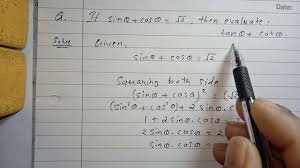 Q. If sinθ + cosθ = √2, then evaluate:
tanθ + cotθ.
Solve Given,
sinθ + cosθ = √2
Squaring both side
(sinθ + cosθ)² = (√2
(sin²θ + cos²θ) + 2 sinθ. c
1 + 2 sinθ. cosθ
2 sinθ. cosθ = 2
sinθ. cosθ =